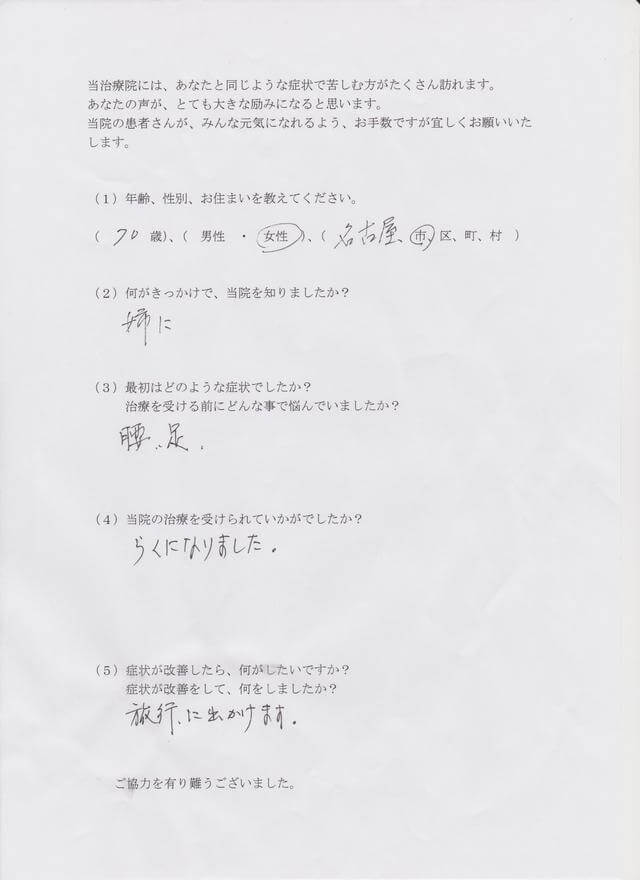 当治療院には、あなたと同じような症状で苦しむ方がたくさん訪れます。
あなたの声が、とても大きな励みになると思います。
当院の患者さんが、みんな元気になれるよう、お手数ですが宜しくお願いいた
します。
（1）年齢、性別、お住まいを教えてください。
（ 70 歳）、（ 男性 ・ 女性 ）、（ 名古屋 市、区、町、村 ）
（2）何がきっかけで、当院を知りましたか？
姉に
（3）最初はどのような症状でしたか？
治療を受ける前にどんな事で悩んでいましたか？
腰、足、
（4）当院の治療を受けられていかがでしたか？
らくになりました。
（5）症状が改善したら、何がしたいですか？
症状が改善をして、何をしましたか？
旅行に出かけます。
ご協力を有り難うございました。